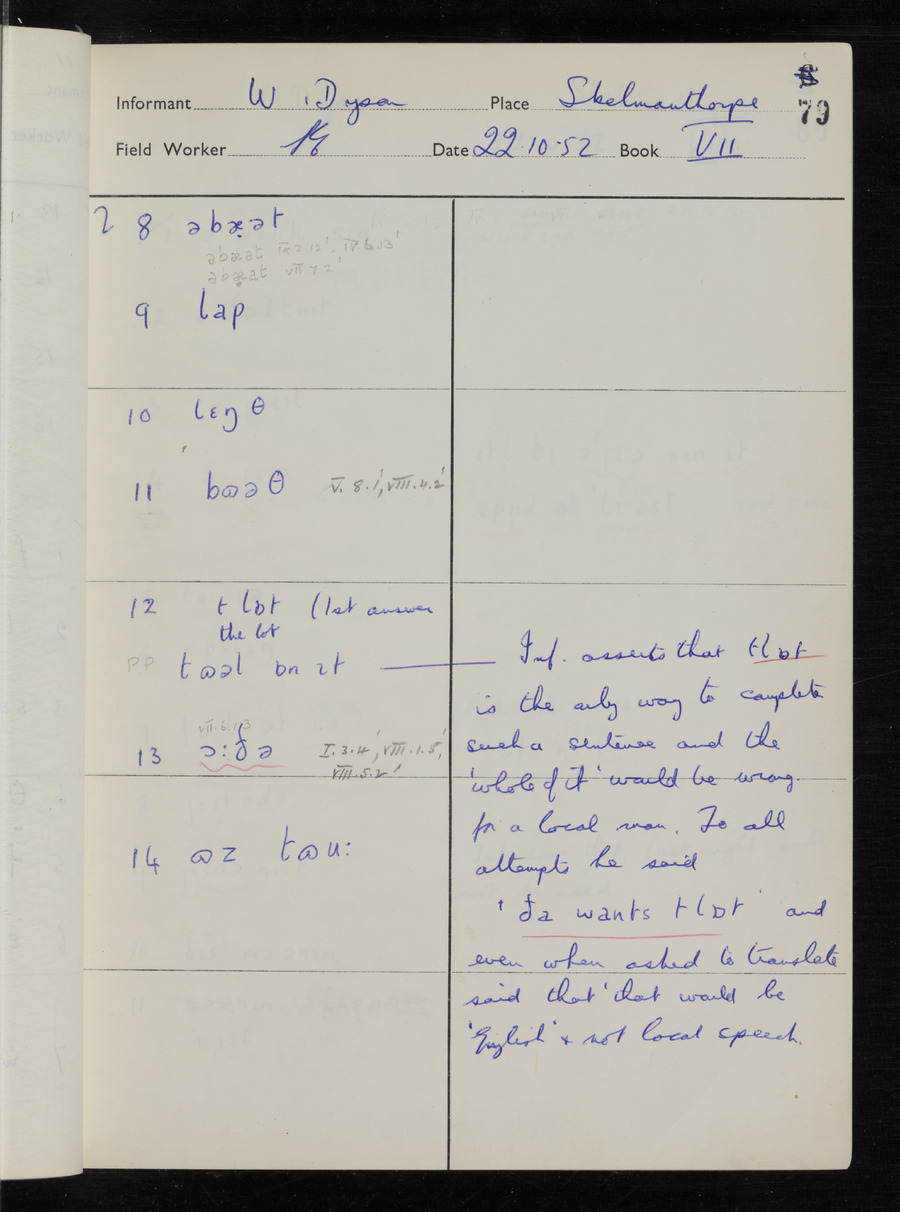 Informant W. Dyson Place Skelmanthorpe
79
Field Worker Date 22.10.52 Book VII
2 8 əbæ̣·ət
əbæət IX.2.12', IV.6.13'
əbæət VII.7.2'
9 lap
10 lɛŋθ
11 bɷəθ V.8.1', VIII.4.2'
12 t lɒt (1st answer
the lot
PP tɷəl ɒn ɪt
VII.6.13
13 ɔ:ðə I.3.4', VIII.1.5',
VIII.5.2'
14 ɷz tɷu:
Inf. asserts that tlɒt
is the only way to complete
such a sentence and the
'whole of it' would be wrong
for a local man. To all
attempts he said
'ða wants tlɒt' and
even when asked to translate
said that 'that would be
'English' & not local speech.